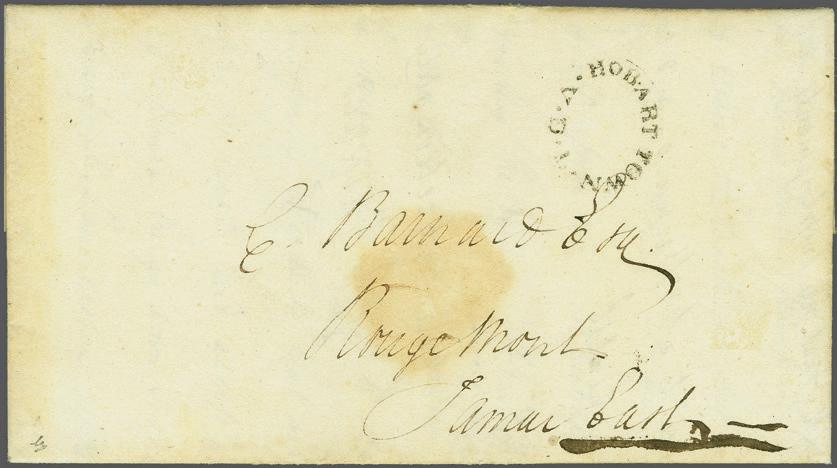 HOBART TOWN
E. Barnard Esq.
Rouge Mont
Tamar East